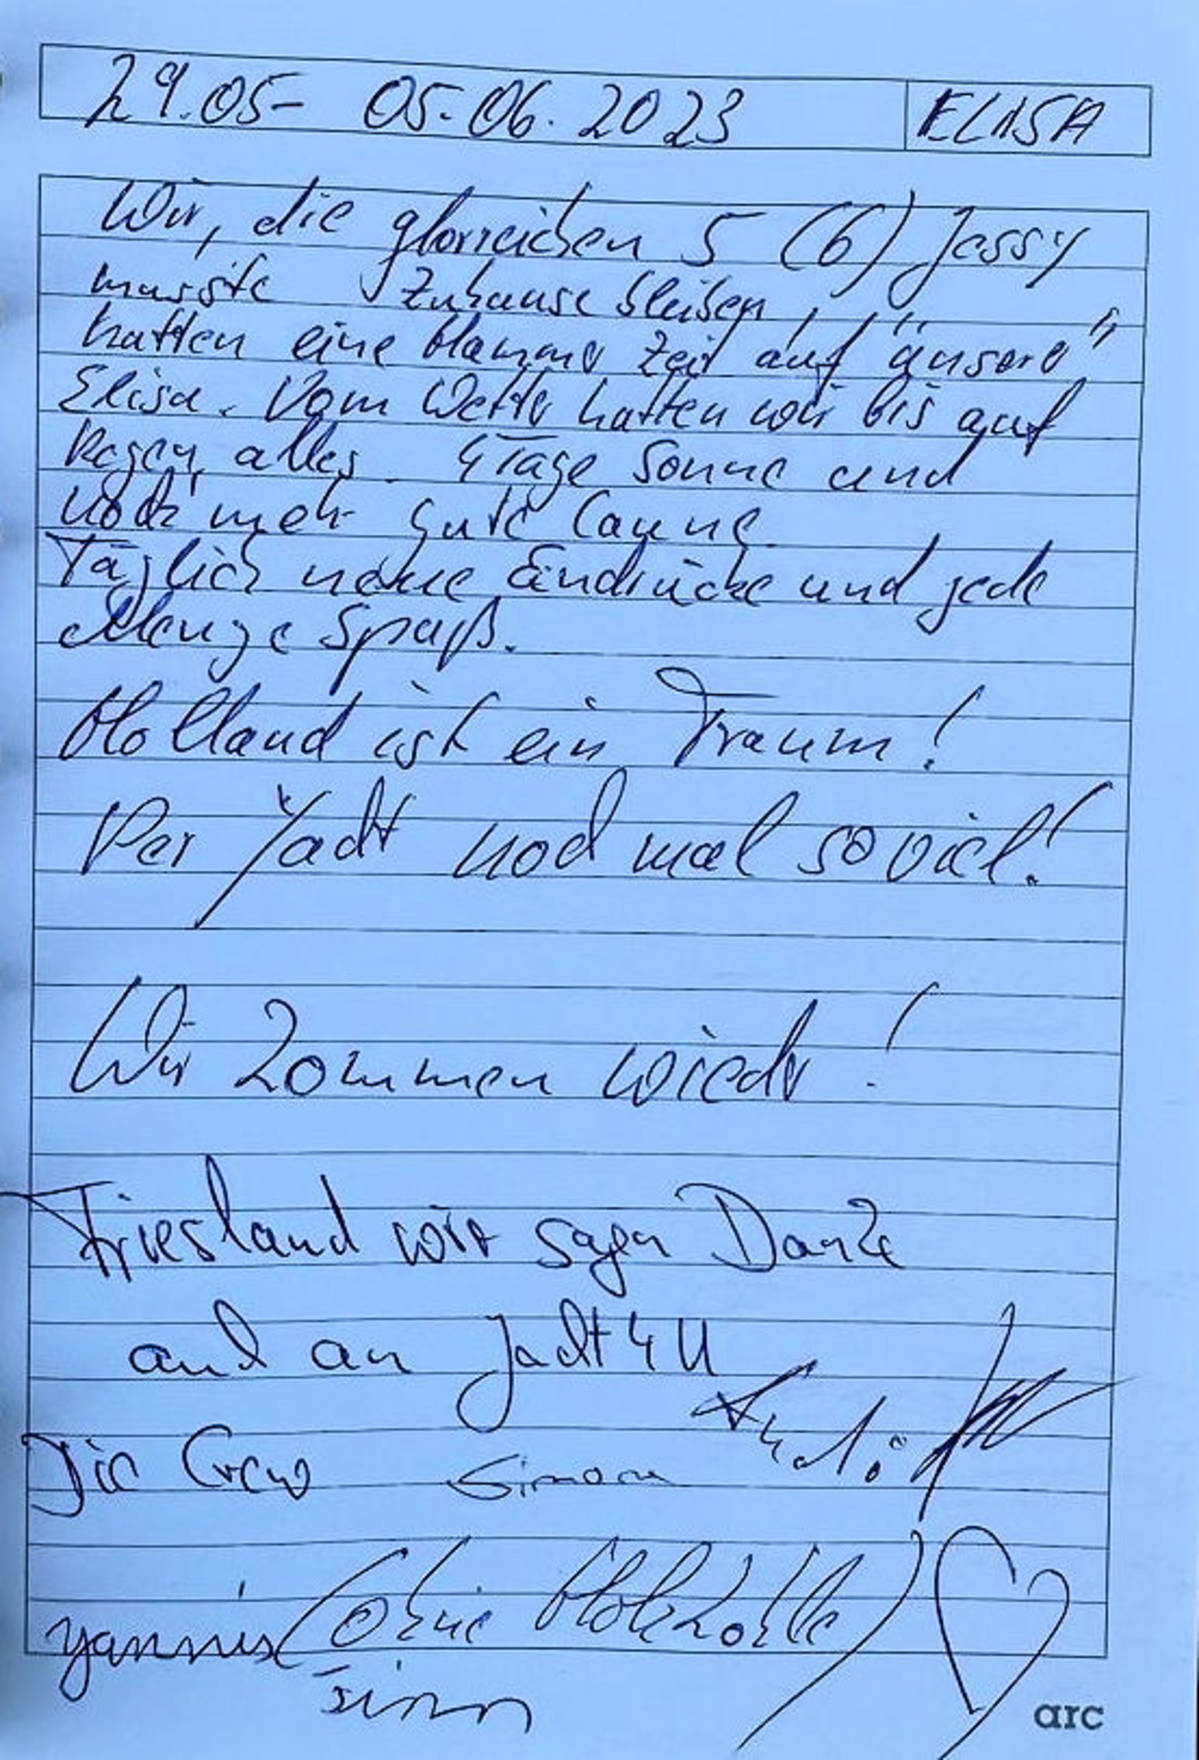 29.05- 05.06.2023 ELISA
Wir, die glorreichen 5 (6) Jessy
musste Zuhause bleiben,
hatten eine Hammer Zeit auf "unsere"
Elisa. Vom Wetter hatten wir bis auf
Regen alles. 4 Tage Sonne und
noch mehr gute Laune.
Täglich neue Eindrücke und jede
Menge Spaß.
Holland ist ein Traum!
Per Yacht noch mal so viel!
Wir kommen wieder!
Friesland wir sagen Danke
auch an Jacht4U
Die Crew Simone
Yannis (ohne Holzkohle)
Finn
arc